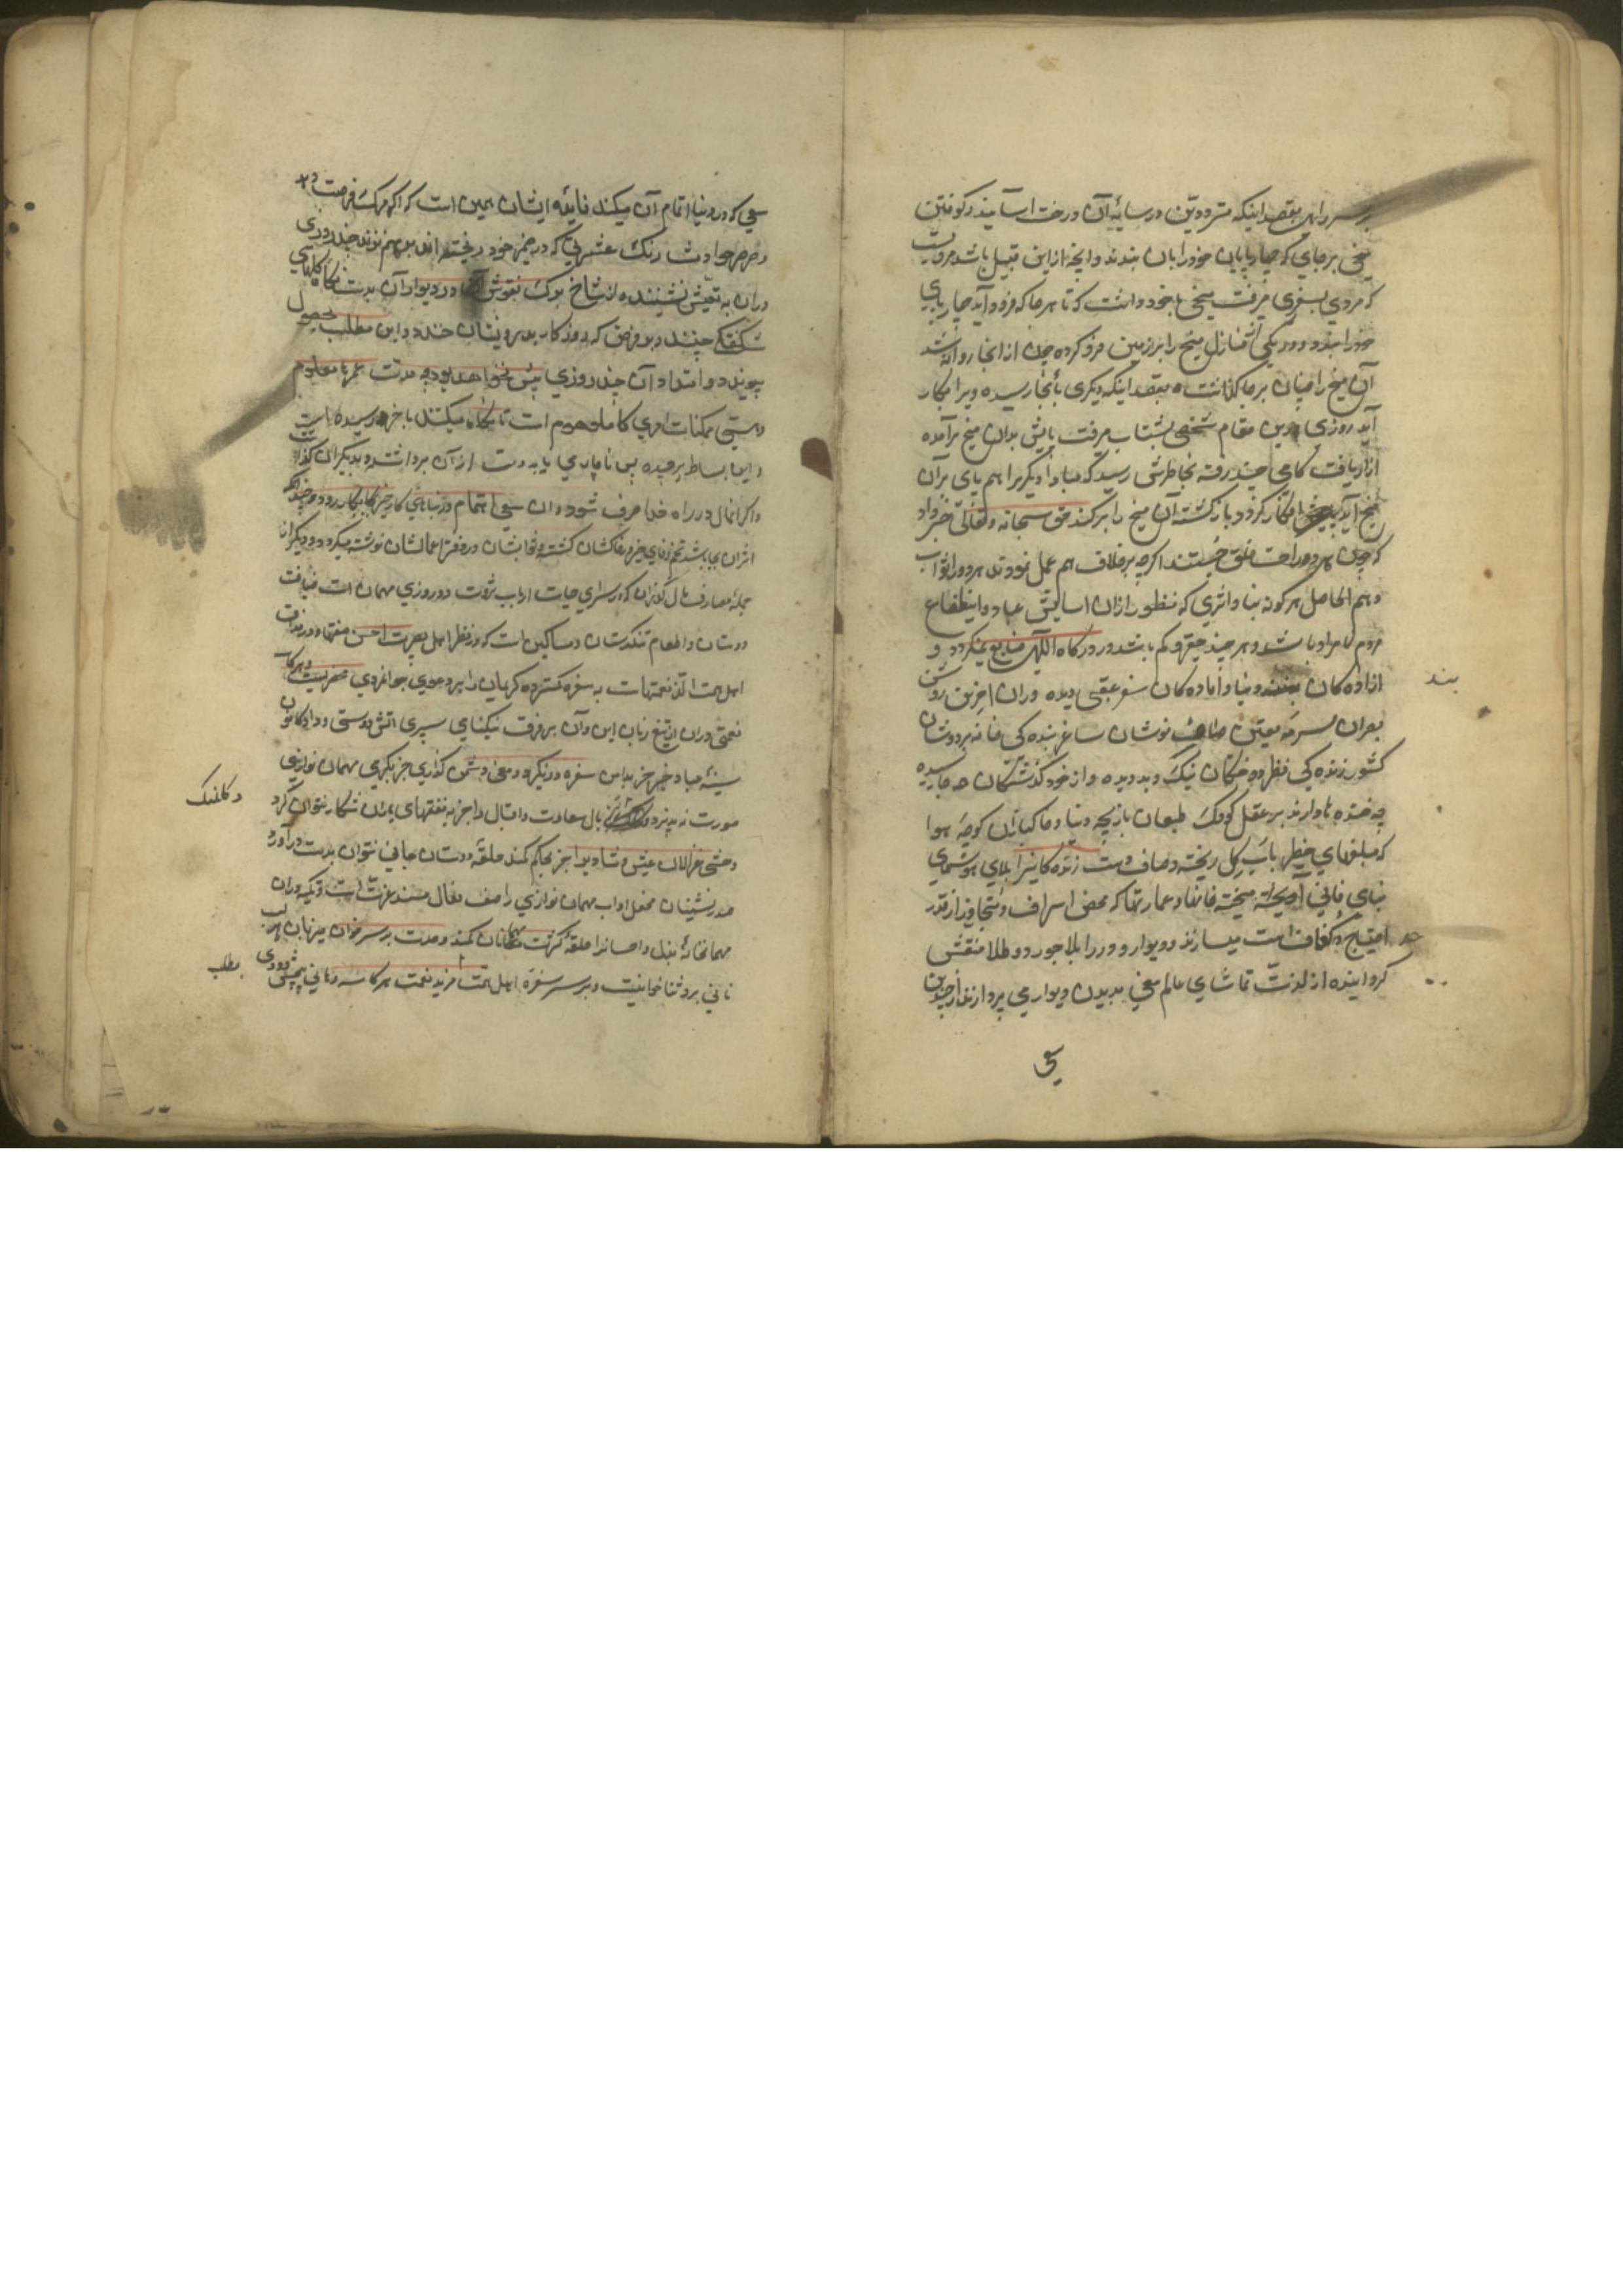 بر سر راهی بقصد اینکه مترددین در سایهٔ آن درخت آسایند و کوفتن
میخی بر جای که چارپایان خود را بان بندند و آنچه ازین قبیل باشد مرویست
که مردی بسفری میرفت میخی با خود داشت که تا هر جا که فرود آید چارپای
خود را بندد و در یکی از منازل میخ را بر زمین فرو کرده چون از انجا روانه شد
آن میخ را چنان بر جا گذاشت بقصد اینکه دیگری بآنجا رسیده ویرا بکار
آید روزی بدین مقام شخصی بشتاب میرفت پایش بدان میخ برآمده
آزار یافت کامی چند رفته بخاطرش رسید که مبادا دیگریرا هم پای بران
میخ آید افکار گردد باز گشته آن میخ را برکند حق سبحانه و تعالی خبر داد
که چون هر دو راحت خلق جستند اگرچه برخلاف هم عمل نمودند هر دو را ثواب
دهم الحاصل هر کونه بنا و اثری که منظور ازان اسایش عباد و انتفاع
مردم نامراد باشد و هر چند حقیر و کم باشد در درکاه الهی ضایع نمیکردد و
ازاده کان بند دنیا و آماده کان سفر عقبی دیده وران آخربین روشن
بصران سرمه یقین صاف نوشان ساغر بنده کی خانه بردوشان
کشور زنده کی نظر دوختگان نیک و بد دیده و از خود گذشتگان بجا رسیده
چه خنده ها دارند بر عقل کودک طبعان بازیچه دنیا و خاکبازان کوچه هوا
که مبلغهای خطیر باب گل ریخته و صاف دست زنده کانیرا بلای
بنای فانی آمیخته خانها و عمارتها که محض اسراف و متجاوز از قدر
احتیاج و کفافست میسازند و دیوار و در را بلاجورد و طلا منقش
گردانیده از لذت تماشای عالم معنی بدیدن دیوار می پردازند از چندین
سعی
بند
حد
سعی که در دنیا اتمام آن میکند فایده ایشان همین است که اگر مرگ فرصت دهد
و صرصر حوادث رنگ عشرتی که در ضمیر خود ریخته اند بر هم نزند چند روزی
دران به تعیش نشینند و از شاخ و برگ نقوش در و دیوار آن بدست نگاه گلهای
شگفتگی چینند و بر فرض که روزگار بر رویشان خندد و این مطلب بحصول
پیوندد امتداد آن چند روزی بیش نخواهد بود چه مدت عمرها معلوم
و هستی ممکنات امری کالمعدوم است تا نگاه میکنند باخر رسیده است
و این بساط برچیده پس ناچاری باید دست از آن برداشت و بدیگران گذاشت
و اگر آنمال در راه خدا صرف شود و ان سعی و اهتمام در بناهای کار خیر بکار رود و چندانکه
اثران می باشد تخم دعای خیر
جملهٔ مصارف مال گذران که در سرای حیات ارباب ثروت دو روزی مهمان است ضیافت
دوستان و اطعام تنگدستان و مساکین است که در نظر اهل بصیرت احسن صفتها و در مذاق
اهل همت الذ نعمتهاست به سفره گسترده کریمان را بر دعوی جوانمردی محضریست و هر کاسه
نعمتی دران از تیغ زبان این و آن بر فرق نیکنامی سپری آتش دوستی در کانون
سینه صیاد خیر جز بدامن سفره در نگیرد و معنی دشمن گدازی جز بگرمی مهمان نوازی
صورت نپذیرد بال سعادت و اقبال را جز به نفقهای یاران شکار نتوان کرد
وحشی غزالان عیش و شادیرا جز بحکم کمند حلقه دوستان جانی نتوان بدست درآورد
صدر نشینان محفل اداب مهمان نوازی را صف نعال مسند عزتست و تکیه وران
مهمانخانهٔ بذل و احسانرا حلقه کثرت مهمانان کمند وحدت بر سر خوان میزبان هر لب
نانی بر و ثناخوانیست و بر سر سفره اهل همت مزید نعمت هر کاسه دهانی
و کلفک
مطلب